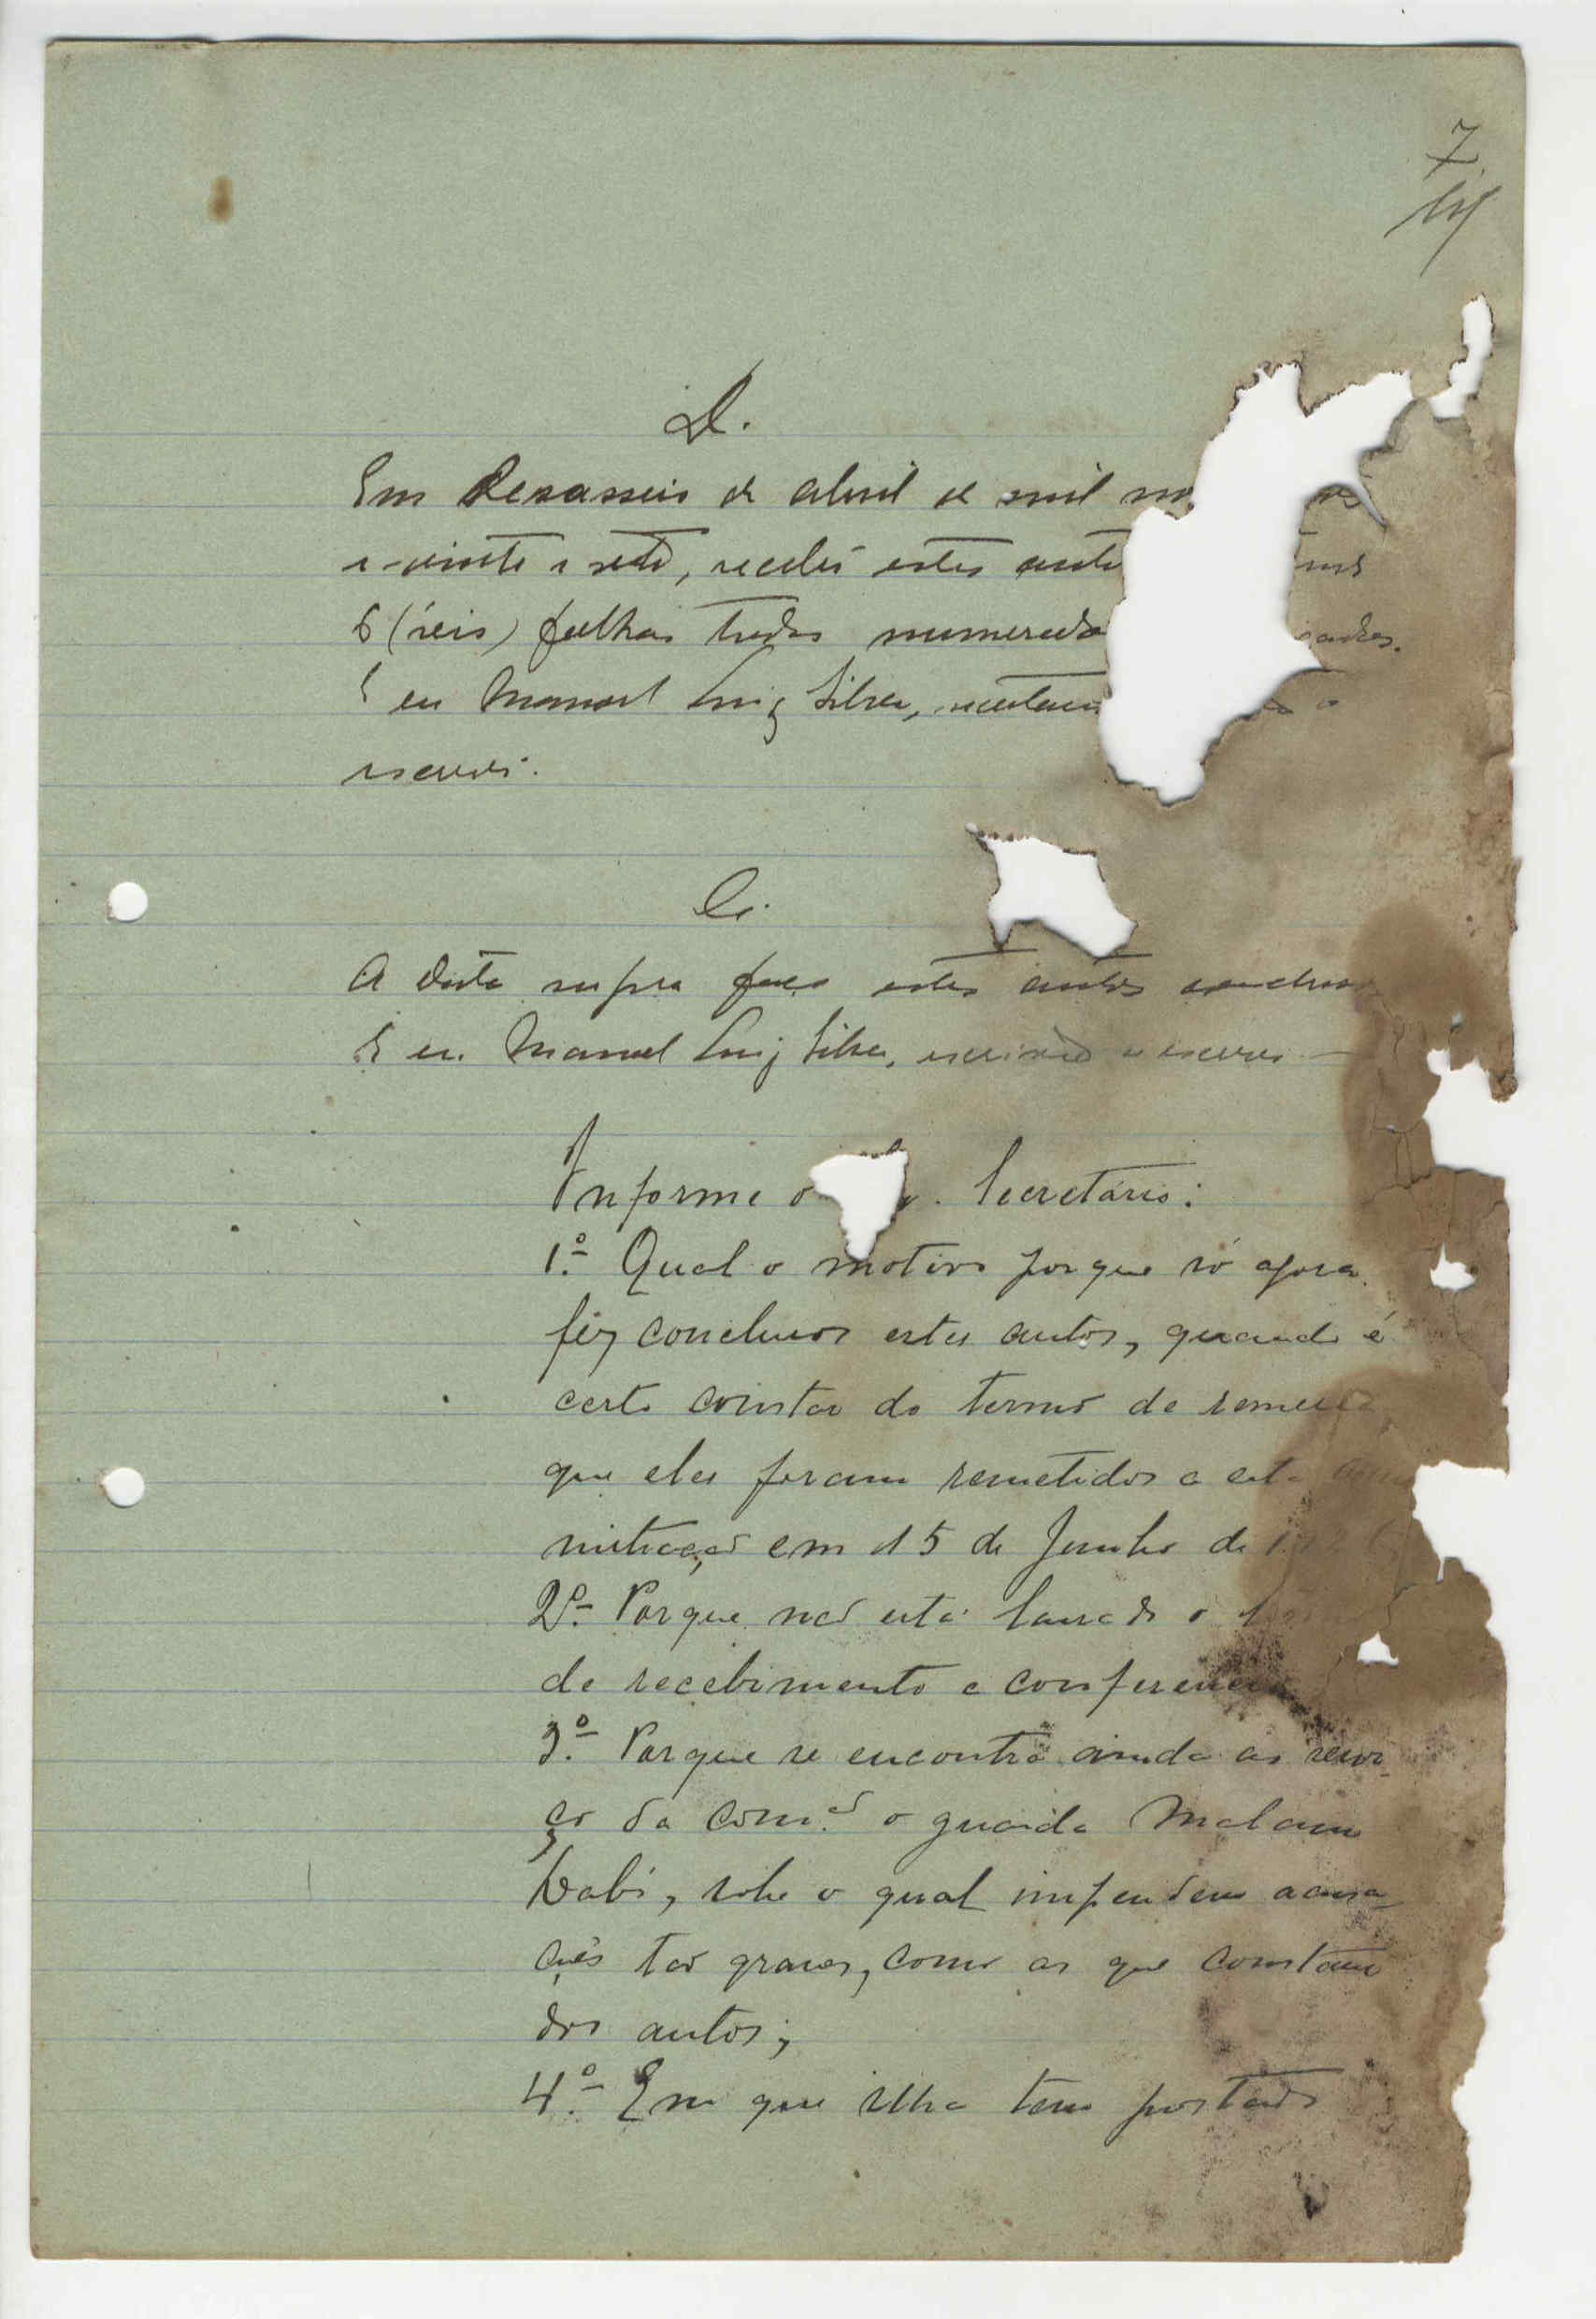 7
D.
Em Dezasseis de abril de mil no
e vinte e sete, recebi estes auto
6 (seis) folhas todas numerada
E eu Manuel Luiz Silva, o
escrevi.
Cl.
A data supra faço estes autos conclusos
E eu Manuel Luiz Silva, escrivão o escrevi —
Informe o Secretário:
1.º Qual o motivo porque só agora
fez conclusos estes autos, quando é
certo constar do termo de remessa
que eles foram remetidos a esta
nistração em 15 de Junho de
2.º Porque não está lavrado o
de recebimento e conferencia
3.º Porque se encontra ainda ao servi-
ço da com.ão o guarda Malam
Dabó, sobe o qual impendem acusa-
ções tão graves, como as que constam
dos autos;
4.º Em que ilha tem postado